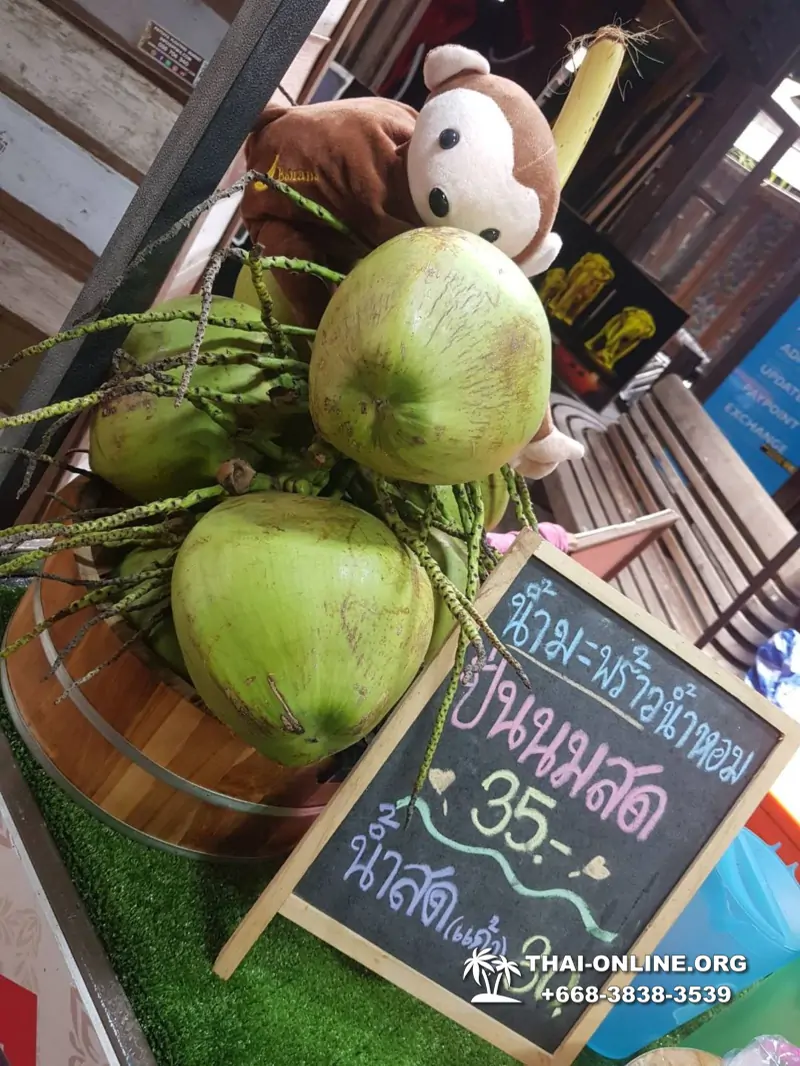 น้ำมะพร้าวน้ำหอม
ปั่นนมสด
35.-
น้ำสด(แก้ว) 30.-
Banana
UPDATE
PAYPOINT
EXCHANGE
THAI-ONLINE.ORG
+668-3838-3539